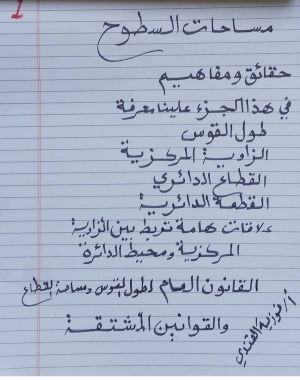 1
مساحات السطوح
حقائق ومفاهيم
في هذا الجزء علينا معرفة
طول القوس
الزاوية المركزية
القطاع الدائري
القطعة الدائرية
علاقات هامة تربط بين الزاوية
المركزية ومحيط الدائرة
القانون العام لطول القوس ومساحة القطاع
والقوانين المشتقة
أ/ فوزية